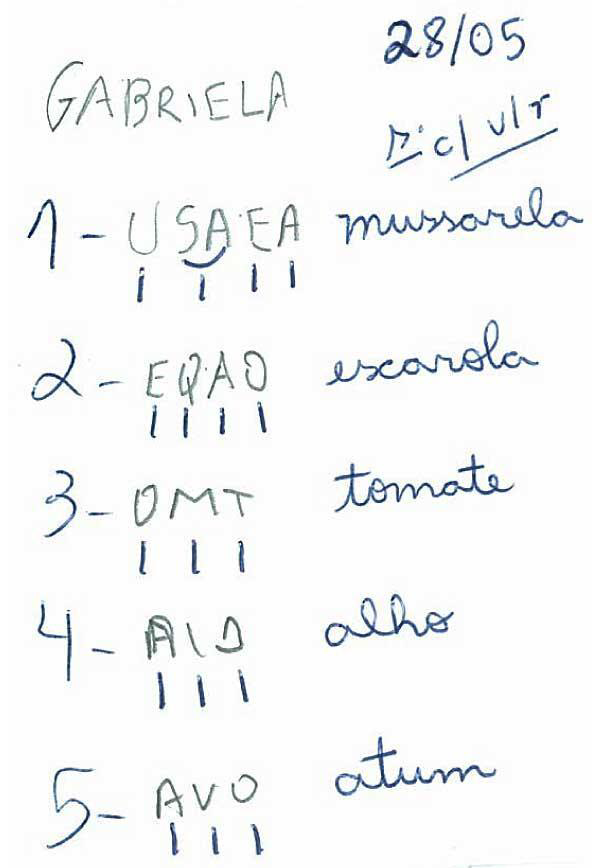 28/05
GABRIELA
c/ v/r
1 - USAEA mussarela
2 - EQAO escarola
3 - OMT tomate
4 - alho
5 - AVO atum